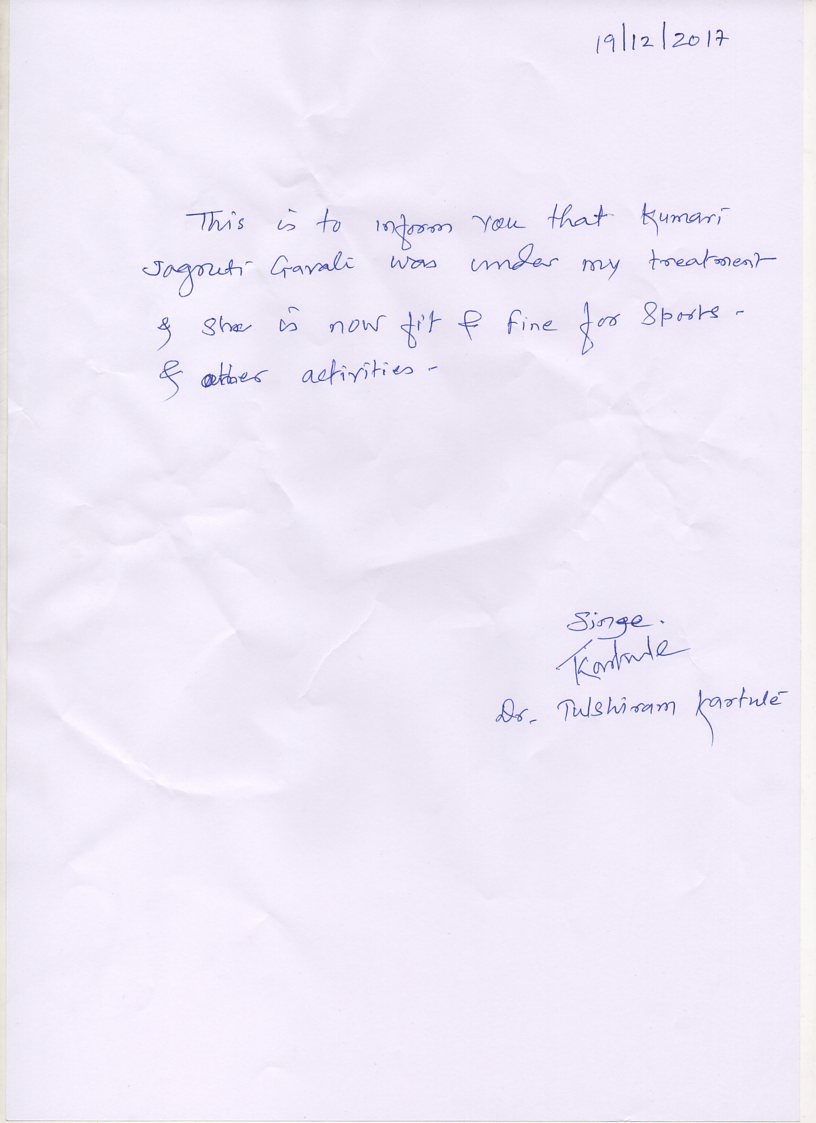 19/12/2017
This is to inform you that Kumari
Jagruti Gavali was under my treatment
& she is now fit & fine for sports -
& other activities -
Singe.
Kartule
Dr. Tulshiram Kartule